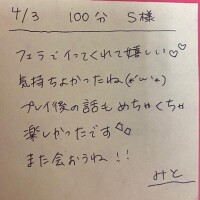 4/3 100分 S様
フェラでイってくれて嬉しい♡♡
気持ちよかったね(*´ω｀*)
プレイ後の話もめちゃくちゃ
楽しかったです
また会おうね!!
みと